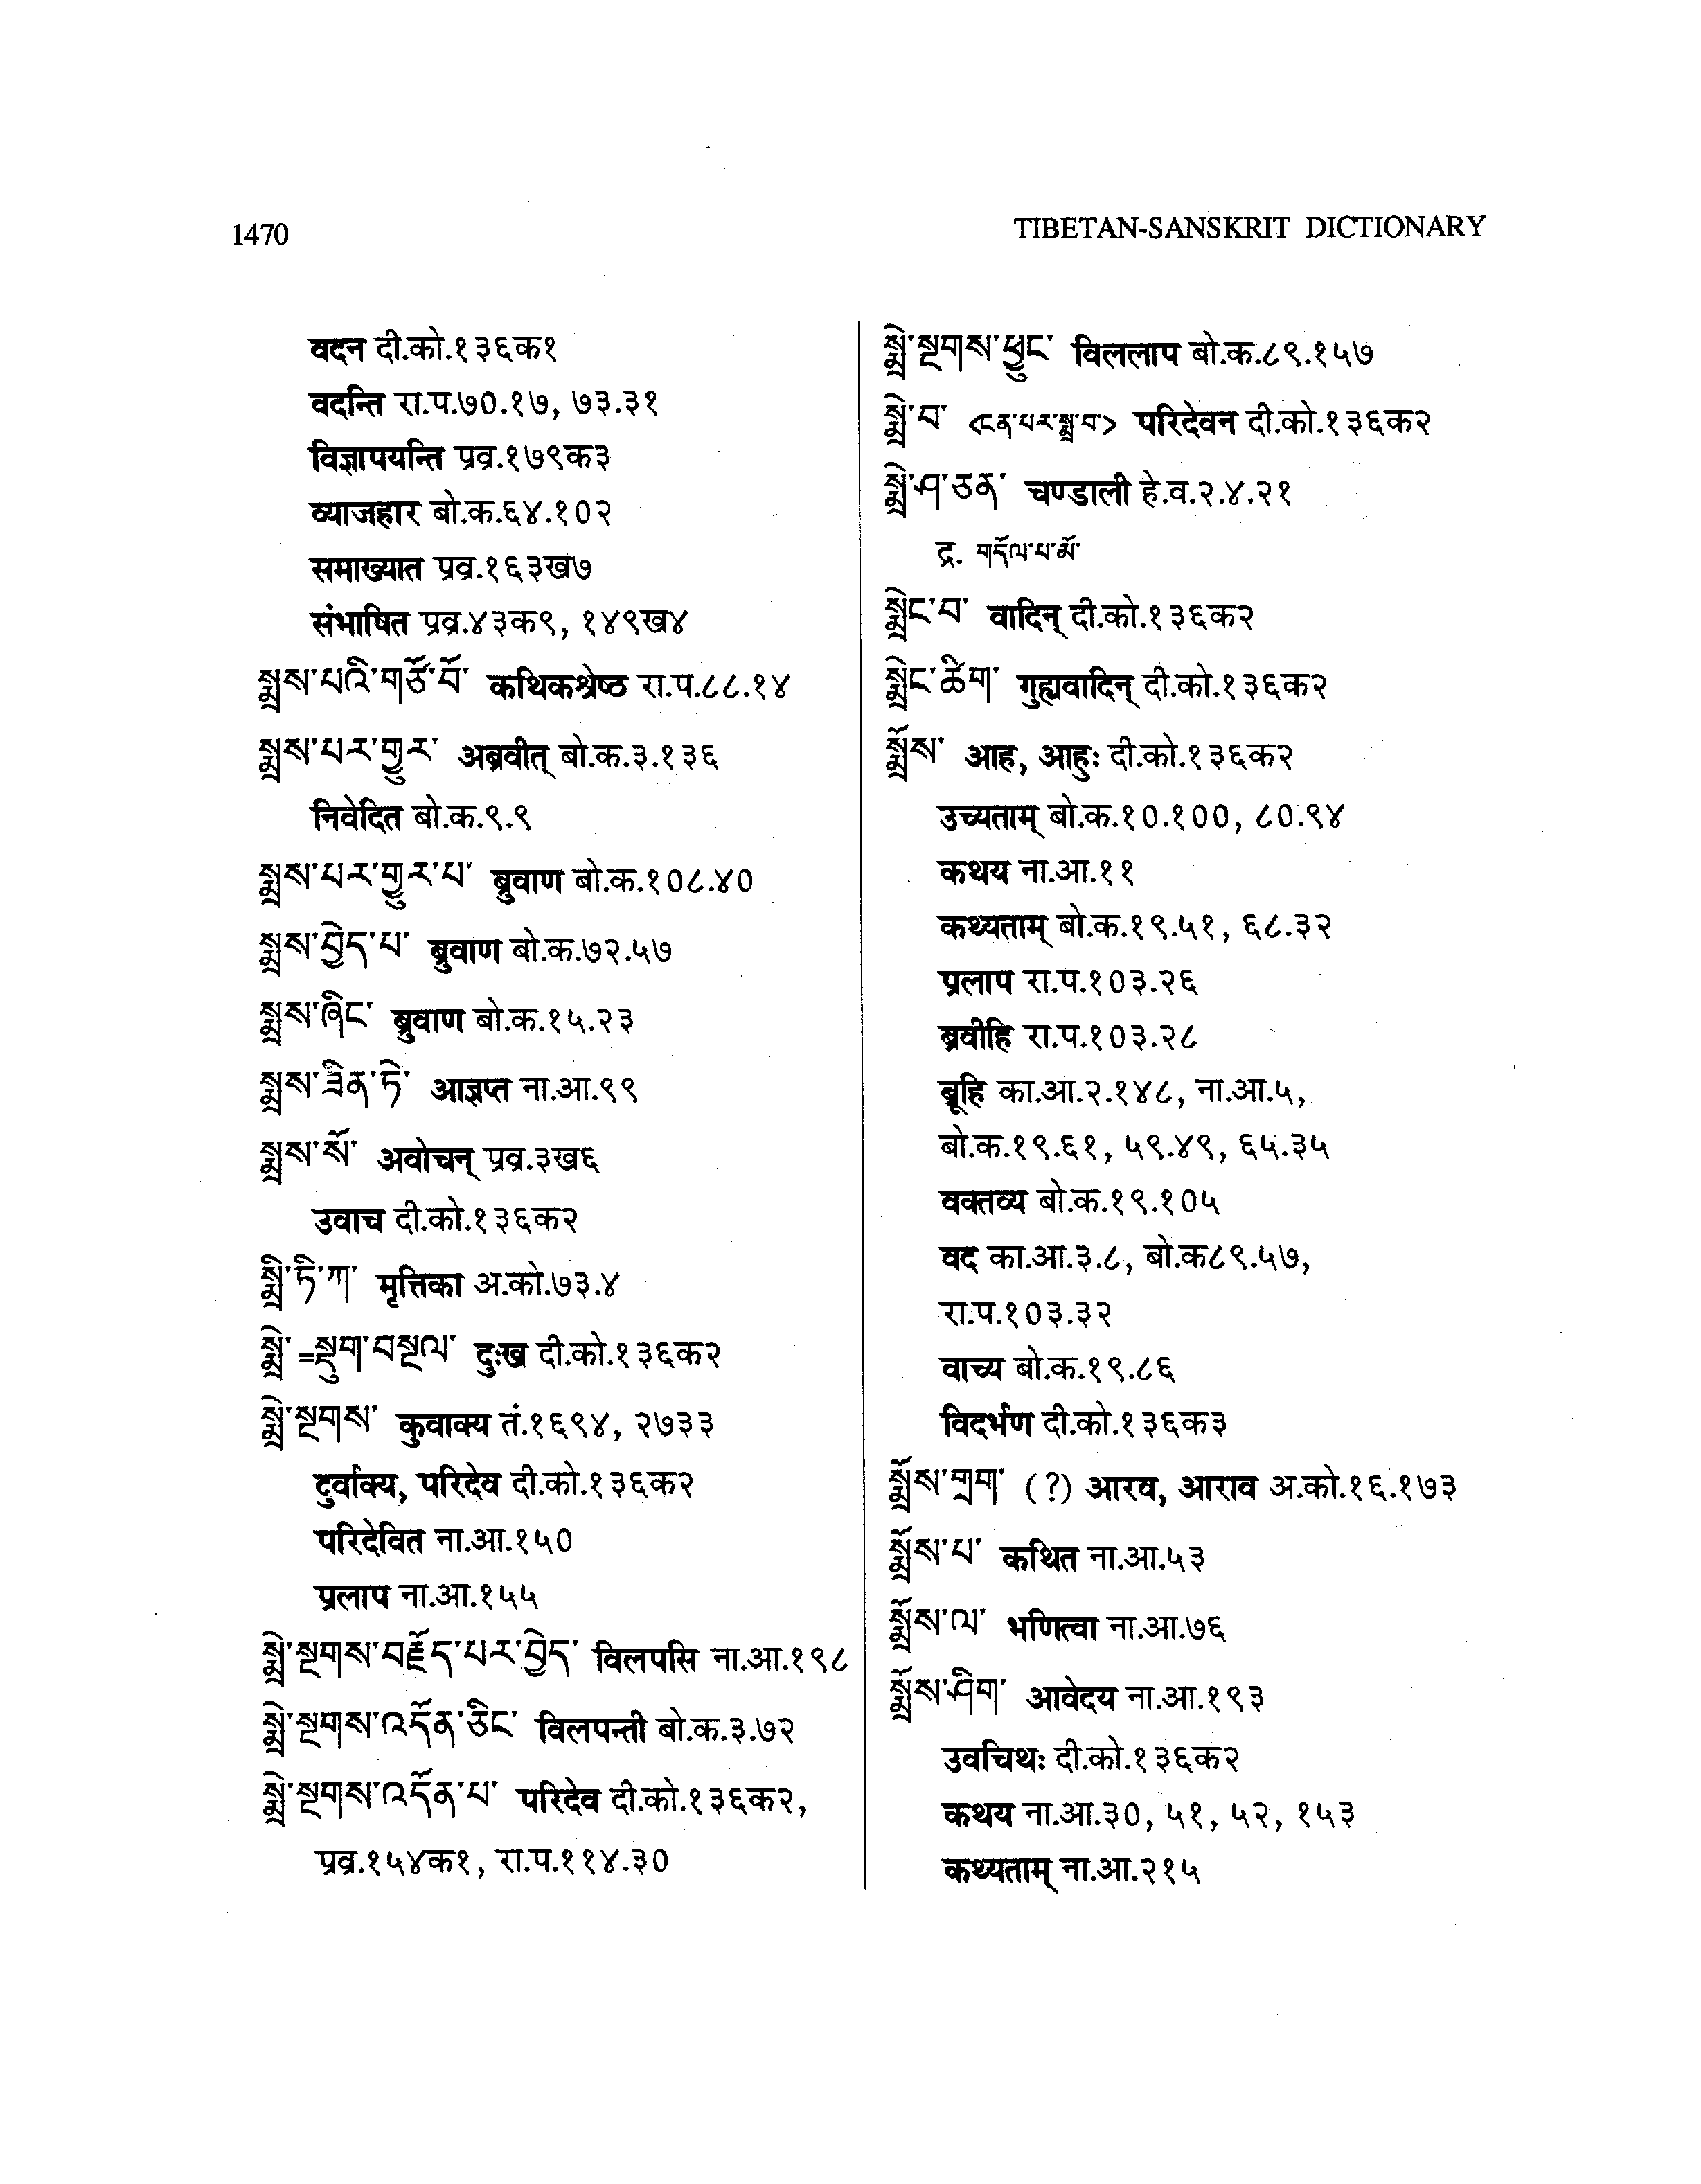 1470
TIBETAN-SANSKRIT DICTIONARY
वदन दी.को.१३६क१
वदन्ति रा.प.७०.१७, ७३.३१
विज्ञापयन्ति प्रव्र.१७९क३
व्याजहार बो.क.६४.१०२
समाख्यात प्रव्र.१६३ख७
संभाषित प्रव्र.४३क९, १४९ख४
སྨྲས་པའི་གཙོ་བོ་ कथिकश्रेष्ठ रा.प.८८.१४
སྨྲས་པར་གྱུར་ अब्रवीत् बो.क.३.१३६
निवेदित बो.क.९.९
སྨྲས་པར་གྱུར་པ་ ब्रुवाण बो.क.१०८.४०
སྨྲས་བྱེད་པ་ ब्रुवाण बो.क.७२.५७
སྨྲས་ཞིང་ ब्रुवाण बो.क.१५.२३
སྨྲས་ཟིན་ཏེ་ आज्ञप्त ना.आ.९९
སྨྲས་སོ་ अवोचन् प्रव्र.३ख६
उवाच दी.को.१३६क२
སྨྲི་ཏི་ཀ་ मृत्तिका अ.को.७३.४
སྨྲེ་=སྡུག་བསྔལ་ दुःख दी.को.१३६क२
སྨྲེ་སྔགས་ कुवाक्य तं.१६९४, २७३३
दुर्वाक्य, परिदेव दी.को.१३६क२
परिदेवित ना.आ.१५०
प्रलाप ना.आ.१५५
སྨྲེ་སྔགས་བརྗོད་པར་བྱེད་ विलपसि ना.आ.१९८
སྨྲེ་སྔགས་འདོན་ཅིང་ विलपन्ती बो.क.३.७२
སྨྲེ་སྔགས་འདོན་པ་ परिदेव दी.को.१३६क२,
प्रव्र.१५४क१, रा.प.११४.३०
སྨྲེ་སྔགས་ཕྱུང་ विललाप बो.क.८९.१५७
སྨྲེ་བ་ <ངན་པར་སྨྲ་བ> परिदेवन दी.को.१३६क२
སྨྲེ་ཤ་ཅན་ चण्डाली हे.व.२.४.२१
द्र. གདོལ་པ་མོ་
སྨྲེང་བ་ वादिन् दी.को.१३६क२
སྨྲེང་ཚིག་ गुह्यवादिन् दी.को.१३६क२
སྨྲོས་ आह, आहुः दी.को.१३६क२
उच्यताम् बो.क.१०.१००, ८०.९४
कथय ना.आ.११
कथ्यताम् बो.क.१९.५१, ६८.३२
प्रलाप रा.प.१०३.२६
ब्रवीहि रा.प.१०३.२८
ब्रूहि का.आ.२.१४८, ना.आ.५,
बो.क.१९.६१, ५९.४९, ६५.३५
वक्तव्य बो.क.१९.१०५
वद का.आ.३.८, बो.क८९.५७,
रा.प.१०३.३२
वाच्य बो.क.१९.८६
विदर्भण दी.को.१३६क३
སྨྲོས་གྲག་ (?) आरव, आराव अ.को.१६.१७३
སྨྲོས་པ་ कथित ना.आ.५३
སྨྲོས་ལ་ भणित्वा ना.आ.७६
སྨྲོས་ཤིག་ आवेदय ना.आ.१९३
उवचिथः दी.को.१३६क२
कथय ना.आ.३०, ५१, ५२, १५३
कथ्यताम् ना.आ.२१५